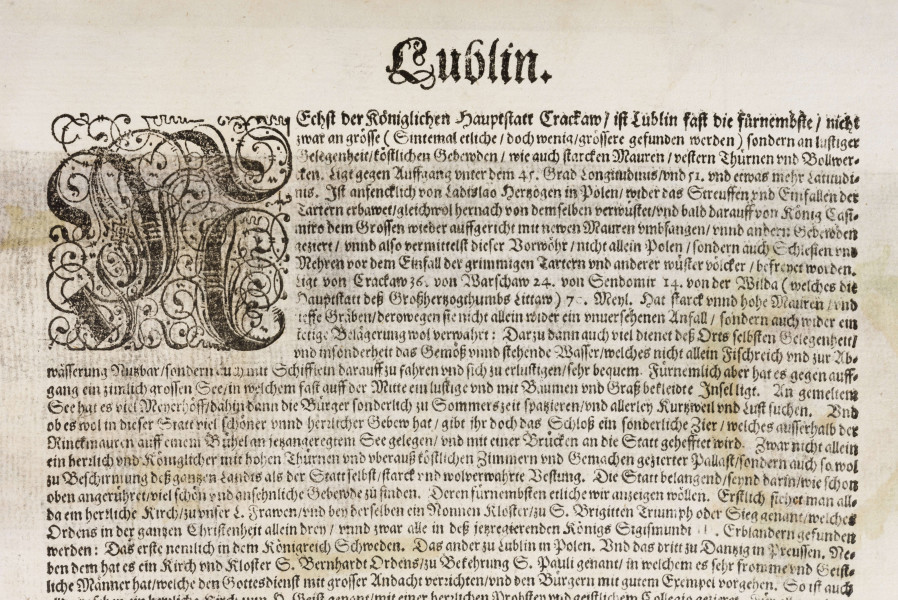 Lublin.
NEchst der Königlichen Hauptstatt Crackaw / ist Lublin fast die fürnembste / nicht
zwar an grösse ( Sintemal etliche / doch wenig / grössere gefunden werden ) sondern an lustiger
Gelegenheit / köstlichen Gebewden / wie auch starcken Mauren / vestern Thürnen vnd Bollwer-
cken. Ligt gegen Auffgang vnter dem 45. Grad Longitudinis / vnd 51. vnd etwas mehr Latitudi-
nis. Ist anfencklich von Ladislao Hertzogen in Polen / wider das Streuffen vnd Einfallen der
Tartern erbawet / gleichwol hernach von demselben verwüstet / vnd bald darauff von König Casi-
miro dem Grossen wieder auffgericht mit newen Mauren vmbfangen / vnnd andern Gebewden
geziert / vnnd also vermittelst dieser Vorwöhr / nicht allein Polen / sondern auch Schlesien vnd
Mehren vor dem Einfall der grimmigen Tartern vnd anderer wüster völcker / befreyet worden.
Ligt von Crackaw 36. von Warschaw 24. von Sendomir 14. von der Wilda ( welches die
Hauptstatt deß Großhertzogthumbs Littaw ) 70. Meyl. Hat starck vnnd hohe Mauren / vnd
tieffe Gräben / derowegen sie nicht allein wider ein vnuersehenen Anfall / sondern auch wider ein
Belägerung wol verwahrt : Darzu dann auch viel dienet deß Orts selbsten Gelegenheit /
vnd insonderheit das Gemöß vnnd stehende Wasser / welches nicht allein Fischreich vnd zur Ab-
wässerung Nutzbar / sondern auch mit Schifflein darauff zu fahren vnd sich zu erlustigen / sehr bequem. Fürnemlich aber hat es gegen auff-
gang ein zimlich grossen See / in welchem fast auff der Mitte ein lustige vnd mit Bäumen vnd Graß bekleidte Insel ligt. An gemeltem
See hat es viel Meyerhöff / dahin dann die Bürger sonderlich zu Sommerszeit spatzieren / vnd allerley Kurtzweil vnd Lust suchen. Vnd
ob es wol in dieser Statt viel schöner vnnd herrlicher Gebew hat / gibt ihr doch das Schloß ein sonderliche Zier / welches ausserhalb der
Rinckmauren auff einem Bühel an jetzangeregtem See gelegen / vnd mit einer Brücken an die Statt gehefftet wird. Zwar nicht allein
ein herrlich vnd Königlicher mit hohen Thürnen vnd vberauß köstlichen Zimmern vnd Gemachen gezierter Pallast / sondern auch so wol
zu Beschirmung deß gantzen Landts als der Statt selbst / starck vnd wolverwahrte Vestung. Die Statt belangend / seynd darin / wie schon
oben angerühret / viel schön vnd ansehnliche Gebewde zu finden. Deren fürnembsten etliche wir anzeigen wöllen. Erstlich siehet man all-
da ein herrliche Kirch / zu vnser L. Frawen / vnd bey derselben ein Nonnen Kloster / zu S. Brigitten Triumph oder Sieg genant / welches
Ordens in der gantzen Christenheit allein drey / vnnd zwar alle in deß jetzregierenden Königs Sigismundi Erblandern gefunden
werden : Das erste nemlich in dem Königreich Schweden. Das ander zu Lublin in Polen. Vnd das dritt zu Dantzig in Preussen. Ne-
ben dem hat es ein Kirch vnd Kloster S. Bernhardt Ordens / zu Bekehrung S. Pauli genant / in welchem es sehr fromme vnd Geist-
liche Männer hat / welche den Gottesdienst mit grosser Andacht verrichten / vnd den Bürgern mit gutem Exempel vorgehen. So ist auch